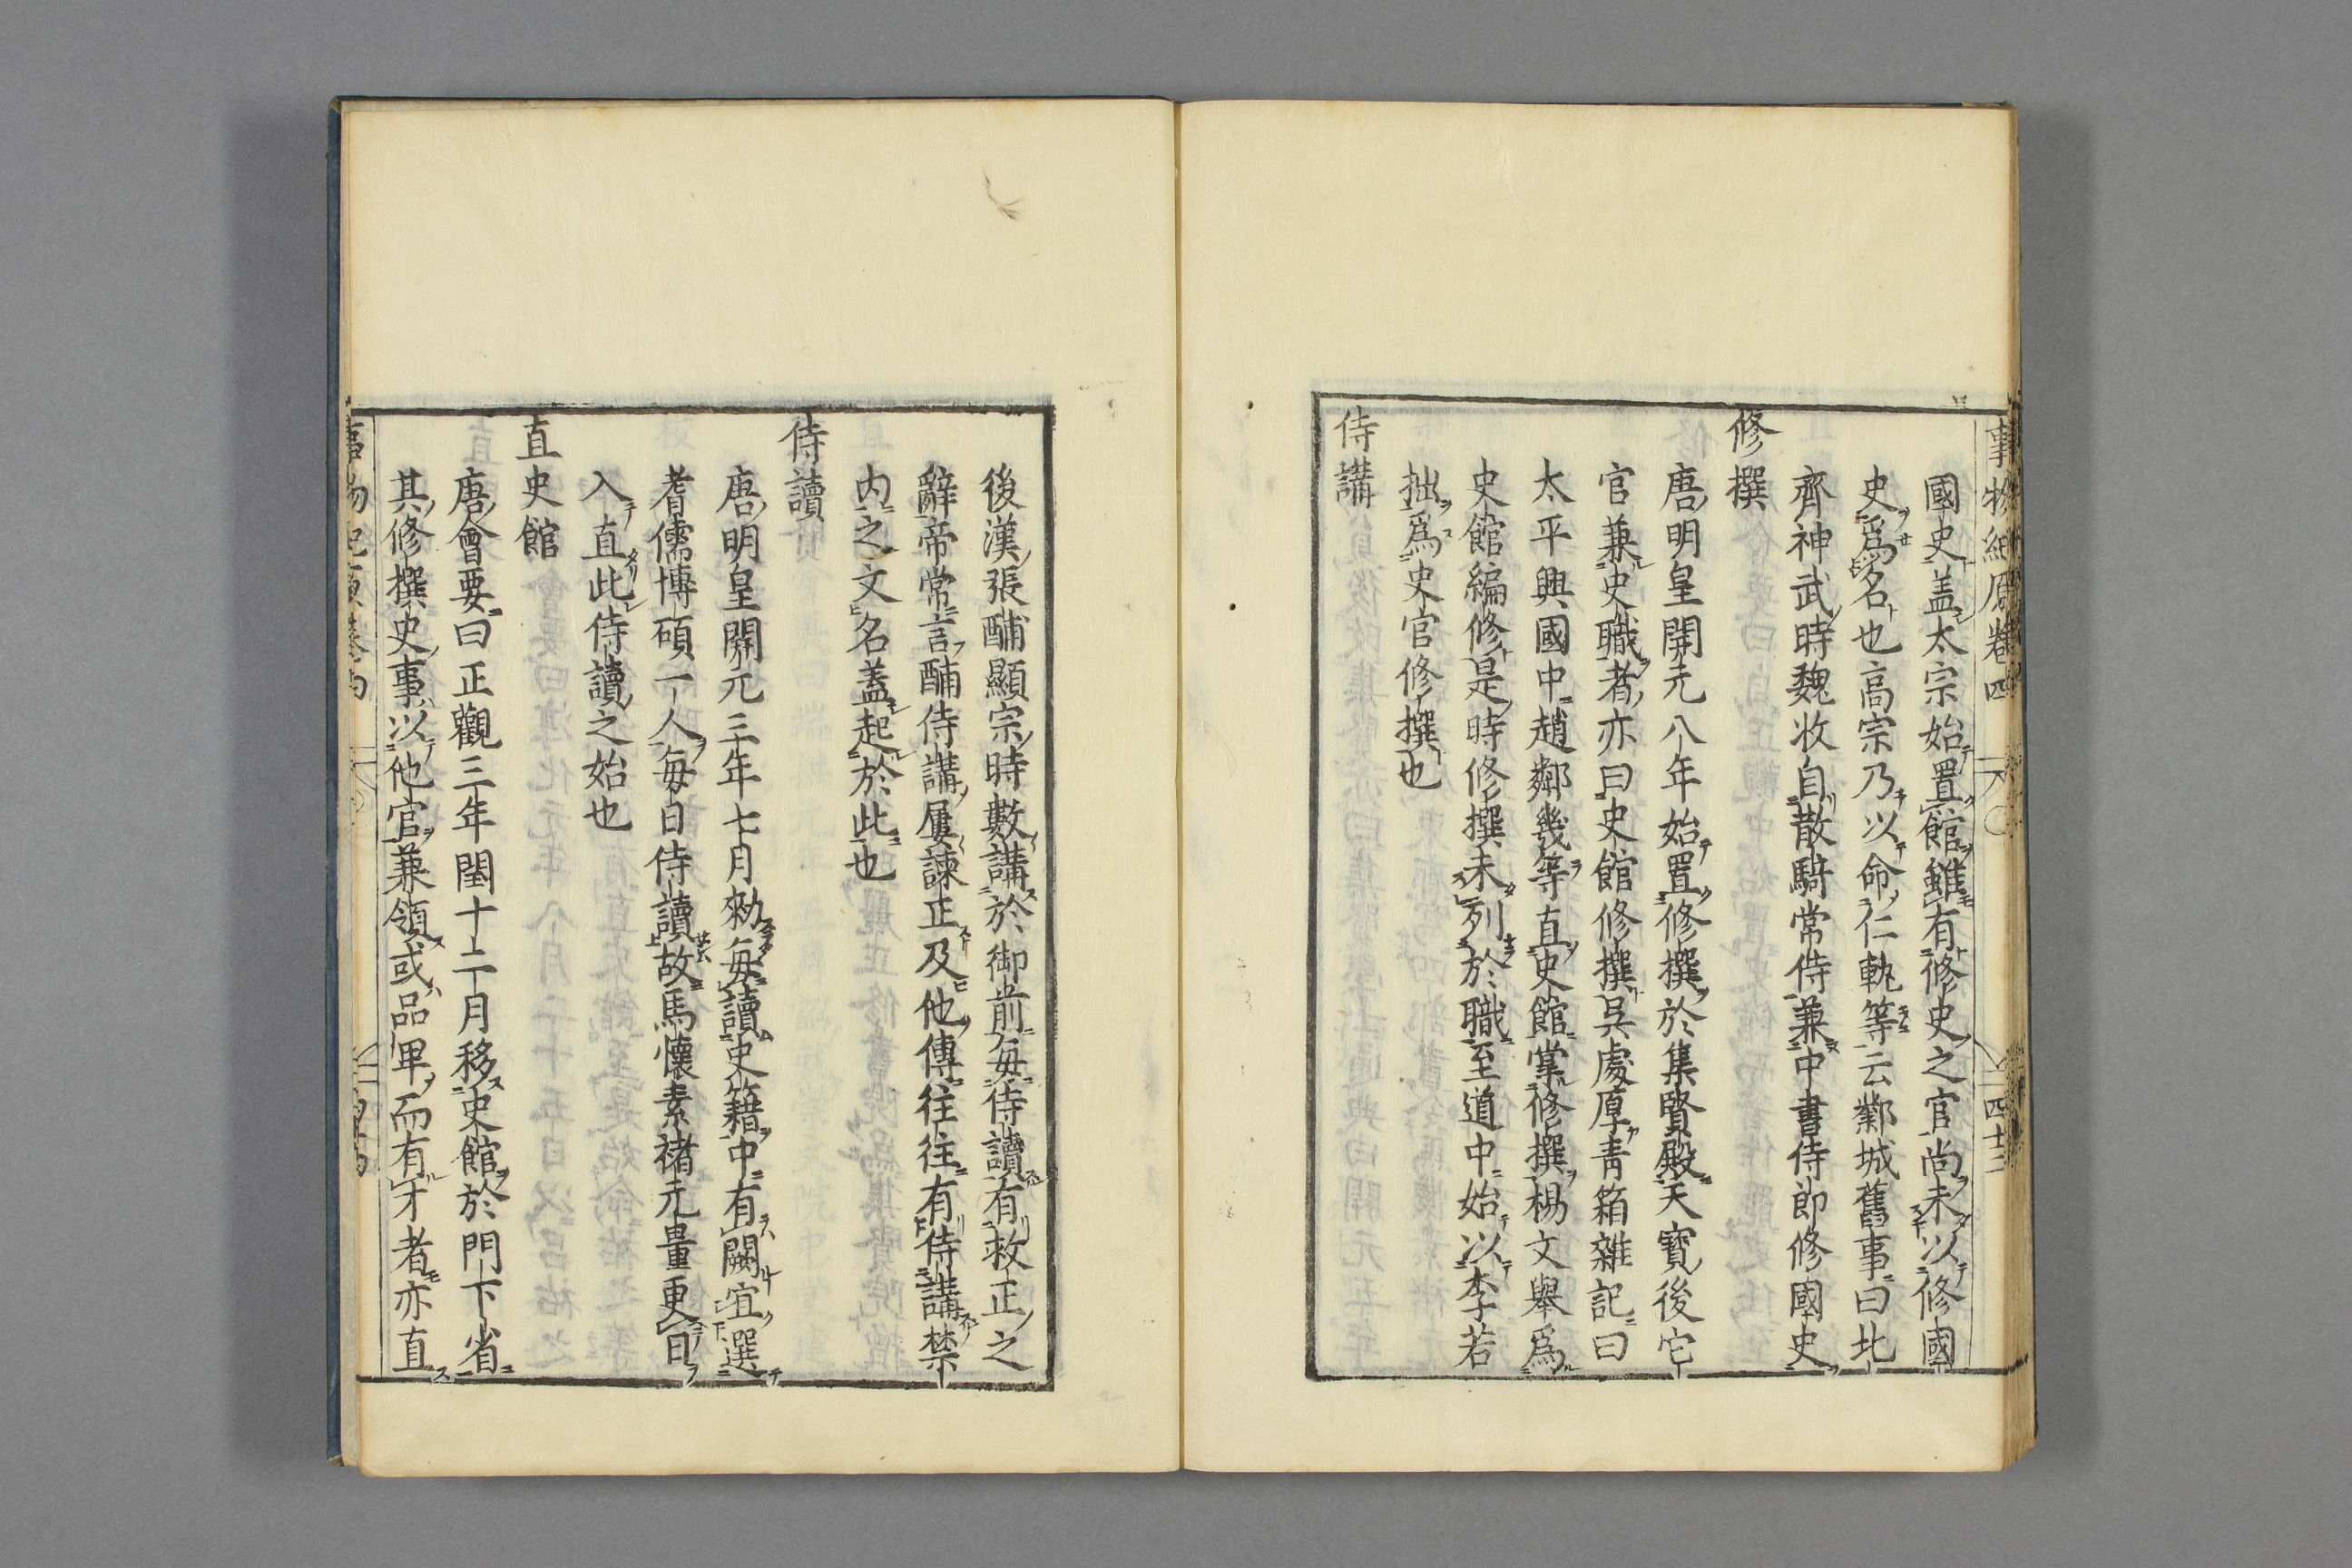 事物紀原卷四 四十三
國史盖太宗始置館雖有修史之官尚未以修國
史爲名也高宗乃以命仁軌等云鄴城舊事曰北
齊神武時魏收自散騎常侍兼中書侍郎修國史
修撰
唐明皇開元八年始置修撰於集賢殿天寶後它
官兼史職者亦曰史館修撰吳處厚青箱雜記曰
太平興國中趙鄰幾等直史館掌修撰楊文舉爲
史館編修是時修撰未列於職至道中始以李若
拙爲史官修撰也
侍講
後漢張酺顯宗時數講於御前每侍讀有救正之
辭帝常言酺侍講屢諫正及他傳往往有侍講禁
内之文名盖起於此也
侍讀
唐明皇開元三年七月勑每讀史籍中有闕宜選
耆儒博碩一人每日侍讀故馬懷素褚元量更日
入直此侍讀之始也
直史館
唐會要曰正觀三年閏十二月移史館於門下省
其修撰史事以他官兼領或品卑而有才者亦直